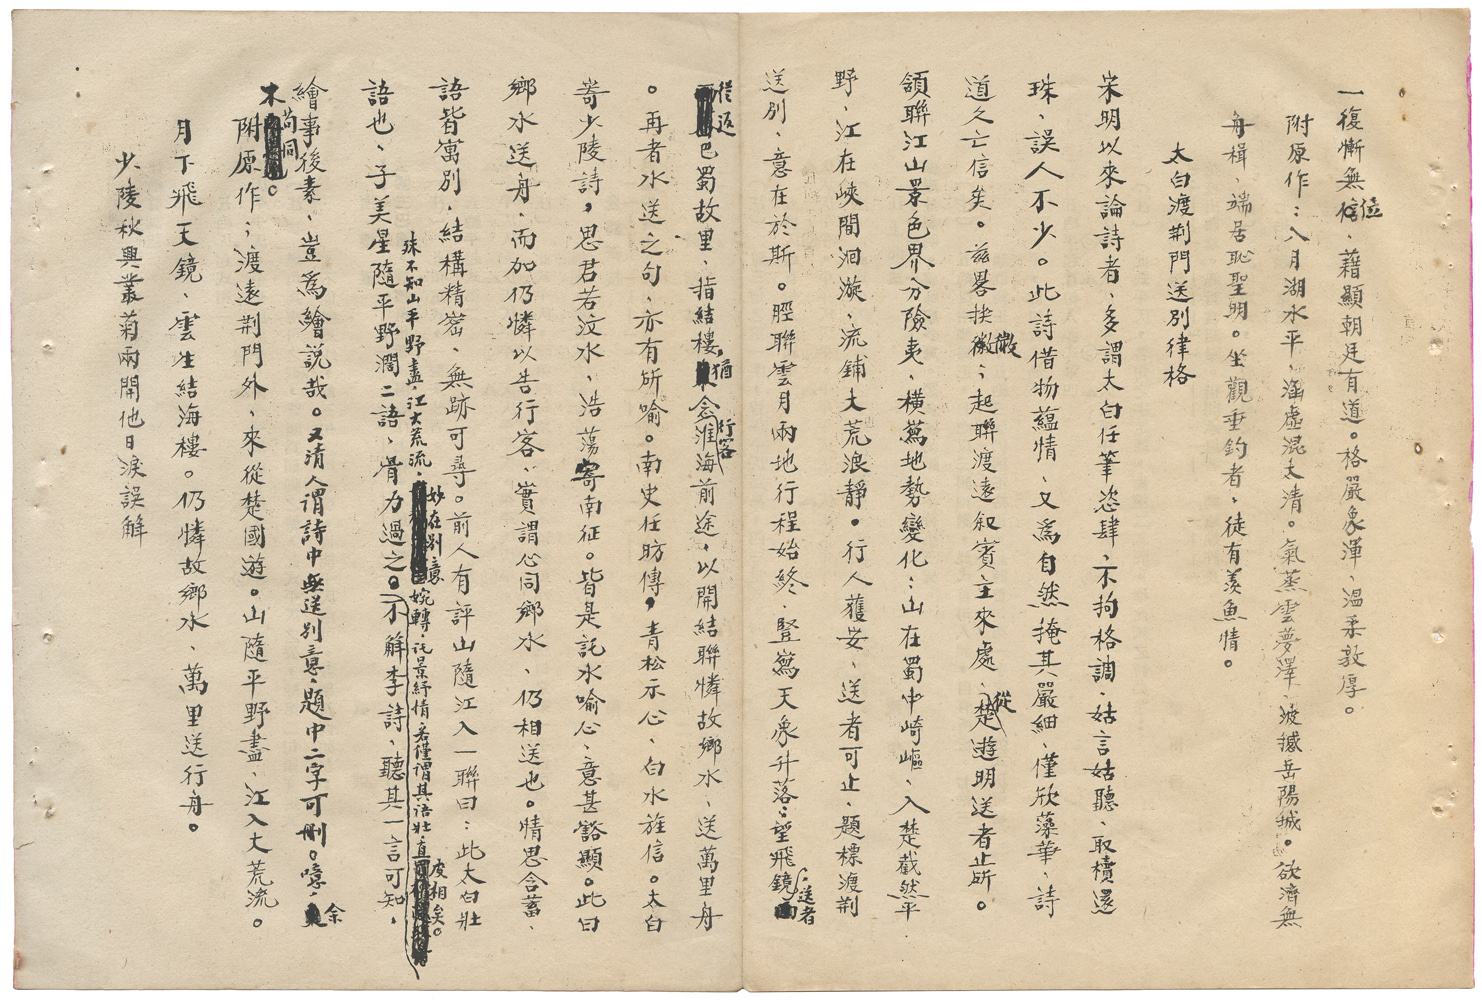 一復慚無位、藉顯朝廷有道。格嚴象渾、溫柔敦厚。
附原作:八月湖水平、涵虛混太清。氣蒸雲夢澤、波撼岳陽城。欲濟無
舟楫、端居恥聖明。坐觀垂釣者、徒有羨魚情。
太白渡荊門送別律格
宋明以來論詩者、多謂太白任筆恣肆、不拘格調、姑言姑聽、取櫝還
珠、誤人不少。此詩借物蘊情、又為自然掩其嚴細、僅欣藻華、詩
道久亡信矣。茲畧抉微:起聯渡遠叙賓主來處、從楚遊明送者止所。
領聯江山景色界分險夷、橫寫地勢變化:山在蜀中崎嶇、入楚截然平
野、江在峽間洄漩、流鋪大荒浪靜。行人獲安、送者可止、題標渡荆
送別、意在於斯。脛聯雲月兩地行程始終、豎寫天象升落:望飛鏡、送者
從返巴蜀故里、指結樓、猶念行客淮海前途、以開結聯憐故鄉水、送萬里舟
。再者水送之句、亦有所喻。南史任昉傳,青松示心、白水旌信。太白
寄少陵詩,思君若汶水、浩蕩寄南征。皆是託水喻心、意甚豁顯。此曰
鄉水送舟、而加仍憐以告行客、實謂心同鄉水、仍相送也。情思含蓄、
語皆寓別、結構精密、無跡可尋。前人有評山隨江入一聯曰:此太白壯
語也、子美星隨平野濶二語、骨力過之。不解李詩、聽其一言可知、
殊不知山平野盡、江大荒流、妙在別意婉轉、託景紓情、若僅謂其語壯、直皮相矣。
繪事後素、豈為繪說哉。又清人謂詩中無送別意、題中二字可刪。噫、余
不苟同。
附原作:渡遠荆門外、來從楚國遊。山隨平野盡、江入大荒流。
月下飛天鏡、雲生結海樓。仍憐故鄉水、萬里送行舟。
少陵秋興叢菊兩開他日淚誤解